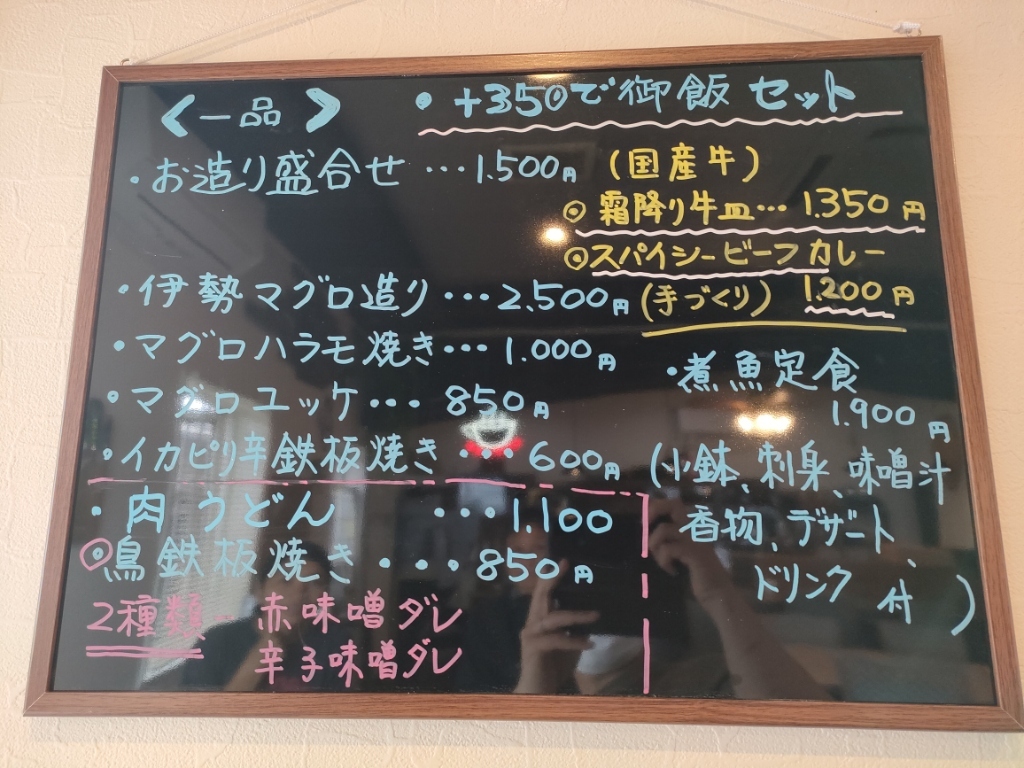 <一品>
・+350で御飯セット
・お造り盛合せ…1.500円
(国産牛)
◎霜降り牛皿…1.350円
◎スパイシービーフカレー
(手づくり) 1.200円
・伊勢マグロ造り…2.500円
・マグロハラモ焼き…1.000円
・マグロユッケ…850円
・イカピリ辛鉄板焼き…600円
・肉うどん …1.100
◎鳥鉄板焼き…850円
2種類― 赤味噌ダレ
辛子味噌ダレ
・煮魚定食
1.900円
(小鉢、刺身、味噌汁
香物、デザート、
ドリンク付)